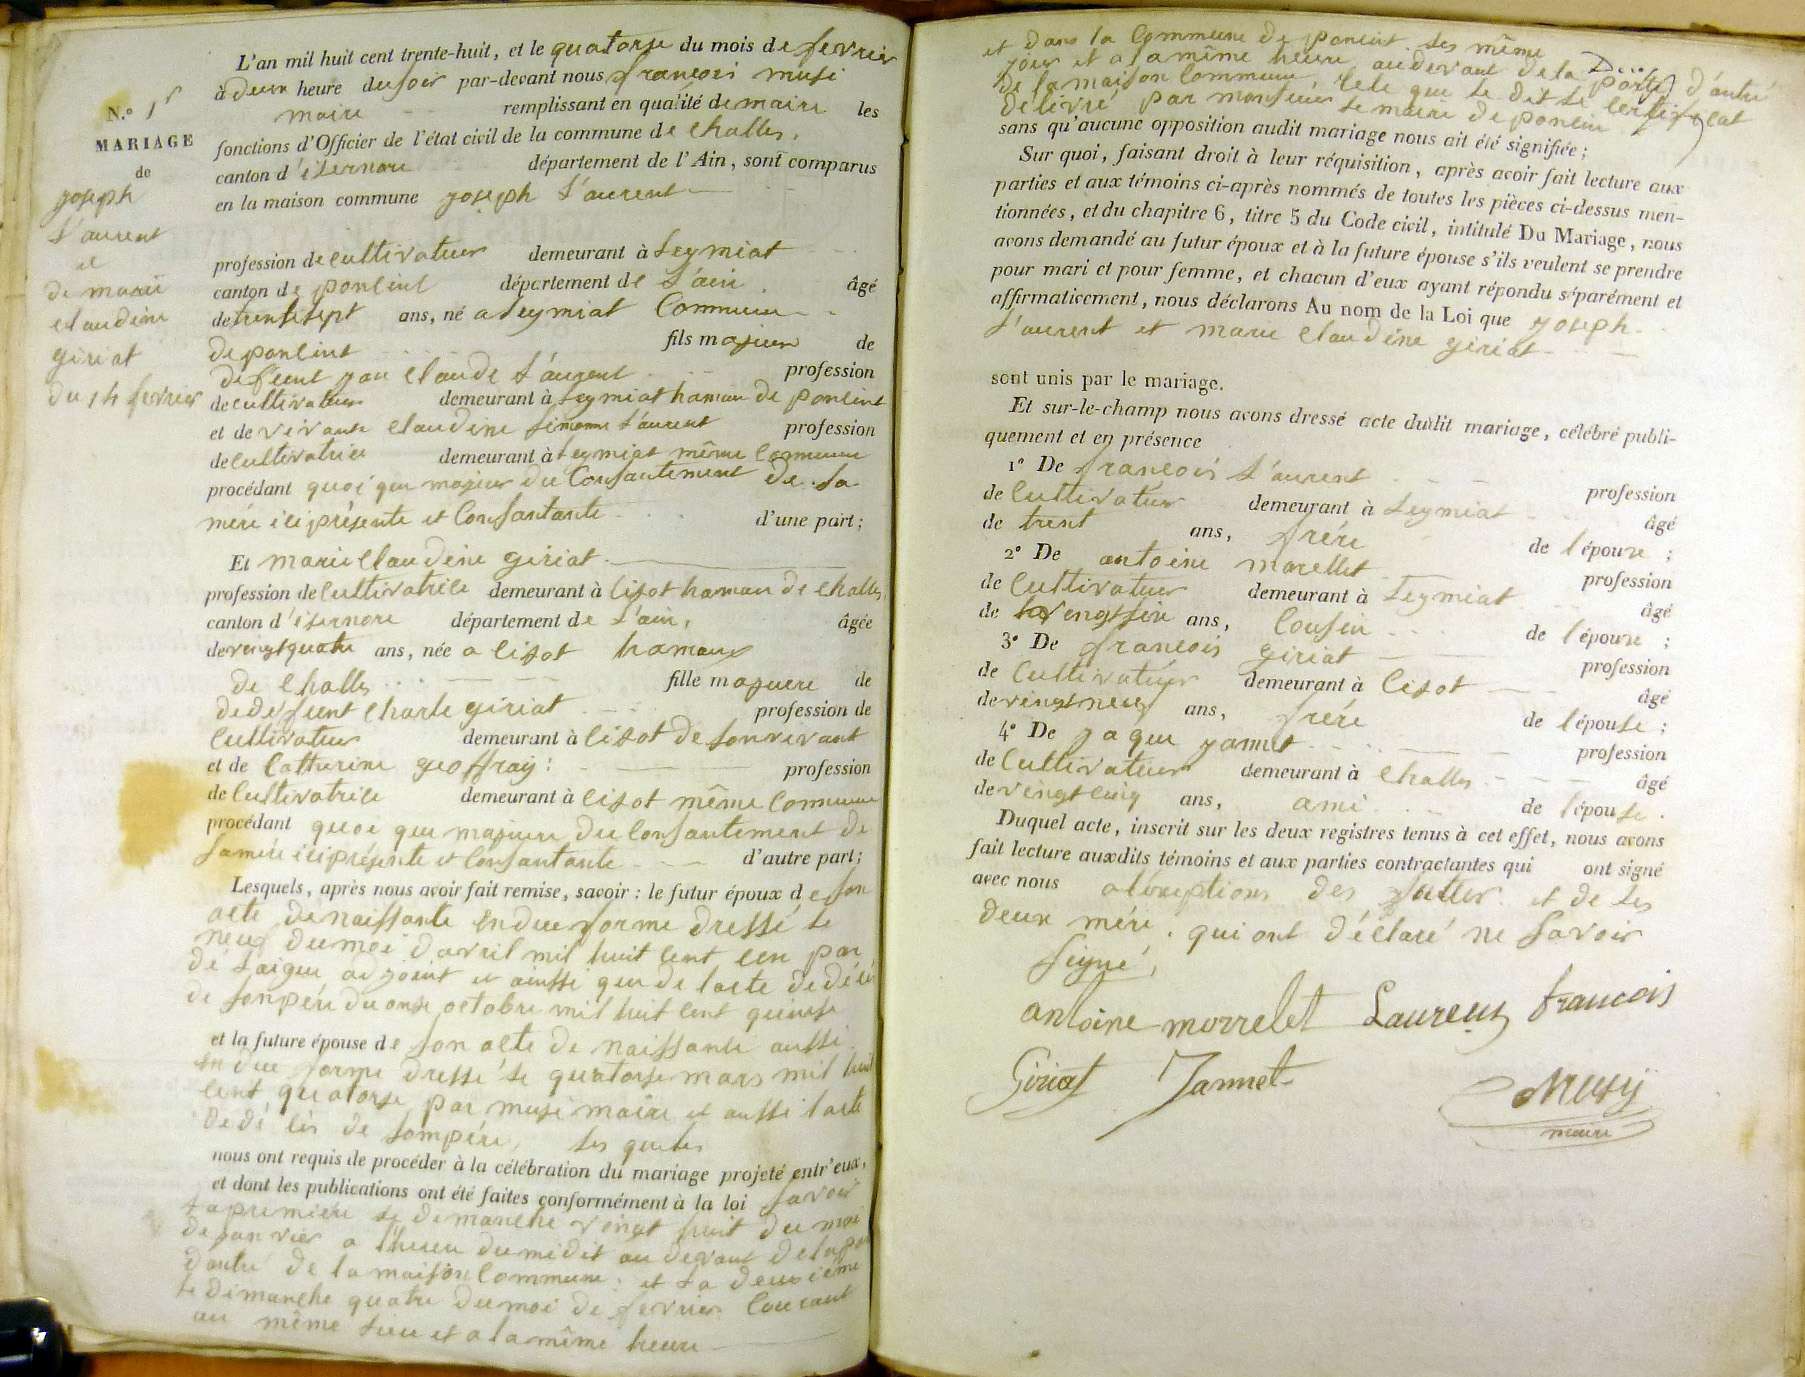 N.o 1r
MARIAGE
de
joseph
L'aurent
et
de marie
claudine
giriat
du 14 fevrier
L'an mil huit cent trente-huit, et le quatorse du mois de fevrier
à deux heure du soir par-devant nous francois musi
maire remplissant en qualité de maire les
fonctions d'Officier de l'état civil de la commune de challes,
canton d'isernore département de l'Ain, sont comparus
en la maison commune joseph L'aurent
profession de cultivateur demeurant à Leymiat
canton de poncint département de L'ain . âgé
de trentesept ans, né a Leymiat Commune
de poncint fils majeur de
defeunt jan claude L'aurent profession
de cultivateur demeurant à Leymiat hamau de poncint
et de vivante claudine simone L'aurent profession
de cultivatrice demeurant à Leymiat même commune
procédant quoi que majeur du Consantement de sa
mére ici présente et Consantante d'une part;
Et marie claudine giriat
profession de cultivatrice demeurant à cisot hamau de challes,
canton d'isernore département de L'ain, âgée
de vengtquatre ans, née a cisot hamaux
de challes fille majeure de
de defeunt charle giriat profession de
cultivateur demeurant à cisot de son vivant
et de catherine geoffray: profession
de cultivatrice demeurant à cisot même commune
procédant quoi que majeure du consantement de
sa mére ici présente et Consantante d'autre part;
Lesquels, après nous avoir fait remise, savoir: le futur époux de son
acte de naissante en due forme dressé le
neuf du moi d'avril mil huit cent un par
de Laigue adjoint et ainssi que de l'acte de décé
de son pére du onse octobre mil huit cent quinse
et la future épouse de son acte de naissante aussi
en due forme dressé le quatorse mars mil huit
cent quatorse par musi maire et aussi l'acte
de dé cés de sompére, les queles
nous ont requis de procéder à la célébration du mariage projeté entr'eux,
et dont les publications ont été faites conformément à la loi savoir
La premiere le demanche vengt huit du moi
de janvier a l'heure du midit au devant de la por
d'antré de la maison Commune: et La deuxiéme
le dimanche quatre du moi de fevrier courant
au même lieu et a la même heure
et dans la Commune de poncint les même
jour et a la même heure au devant de la porte d'antré
de la maison Commune, tele que le dit le certificat
delivré par monsieur le maire de poncin
sans qu'aucune opposition audit mariage nous ait été signifiée;
Sur quoi, faisant droit à leur réquisition, après avoir fait lecture aux
parties et aux témoins ci-après nommés de toutes les pièces ci-dessus men-
tionnées, et du chapitre 6, titre 5 du Code civil, intitulé Du Mariage, nous
avons demandé au futur époux et à la future épouse s'ils veulent se prendre
pour mari et pour femme, et chacun d'eux ayant répondu séparément et
affirmativement, nous déclarons Au nom de la Loi que joseph
L'aurent et marie claudine giriat
sont unis par le mariage.
Et sur-le-champ nous avons dressé acte dudit mariage, célébré publi-
quement et en présence
1° De francois L'aurent profession
de Cultivateur demeurant à Leymiat âgé
de trent ans, frére de l'épouxe ;
2° De antoine morellet profession
de Cultivateur demeurant à Leymiat âgé
de vengtsix ans, cousin de l'épouxe ;
3° De francois giriat profession
de Cultivateur demeurant à cisot âgé
de vengtneuf ans, frére de l'épouse ;
4° De jaque jannet profession
de Cultivateur demeurant à challes âgé
de vengtcinq ans, ami de l'épouse .
Duquel acte, inscrit sur les deux registres tenus à cet effet, nous avons
fait lecture auxdits témoins et aux parties contractantes qui ont signé
avec nous a l'exeptions des et de les
deux mére. qui ont déclaré ne savoir
signé,
antoine morrelet Laurent francois
Giriat Jannet
Musÿ
maire